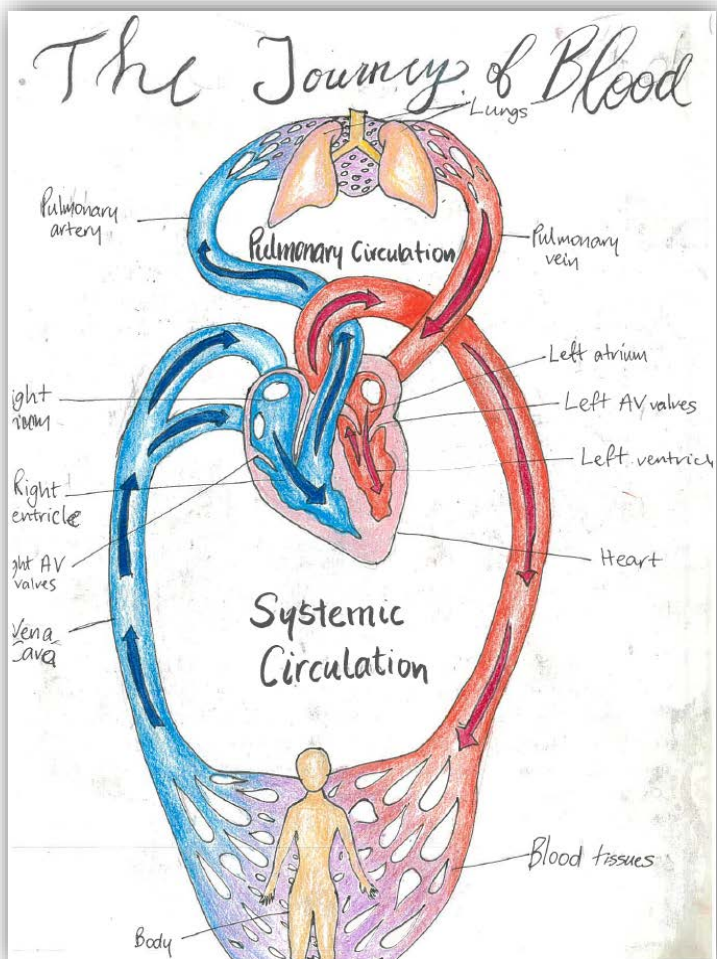 The Journey of Blood
Lungs
Pulmonary
artery
Pulmonary Circulation
Pulmonary
vein
Left atrium
Left AV valves
Left ventricl
Heart
ight
Right
entricle
ght AV
valves
Vena
Cava
Systemic
Circulation
Blood tissues
Body